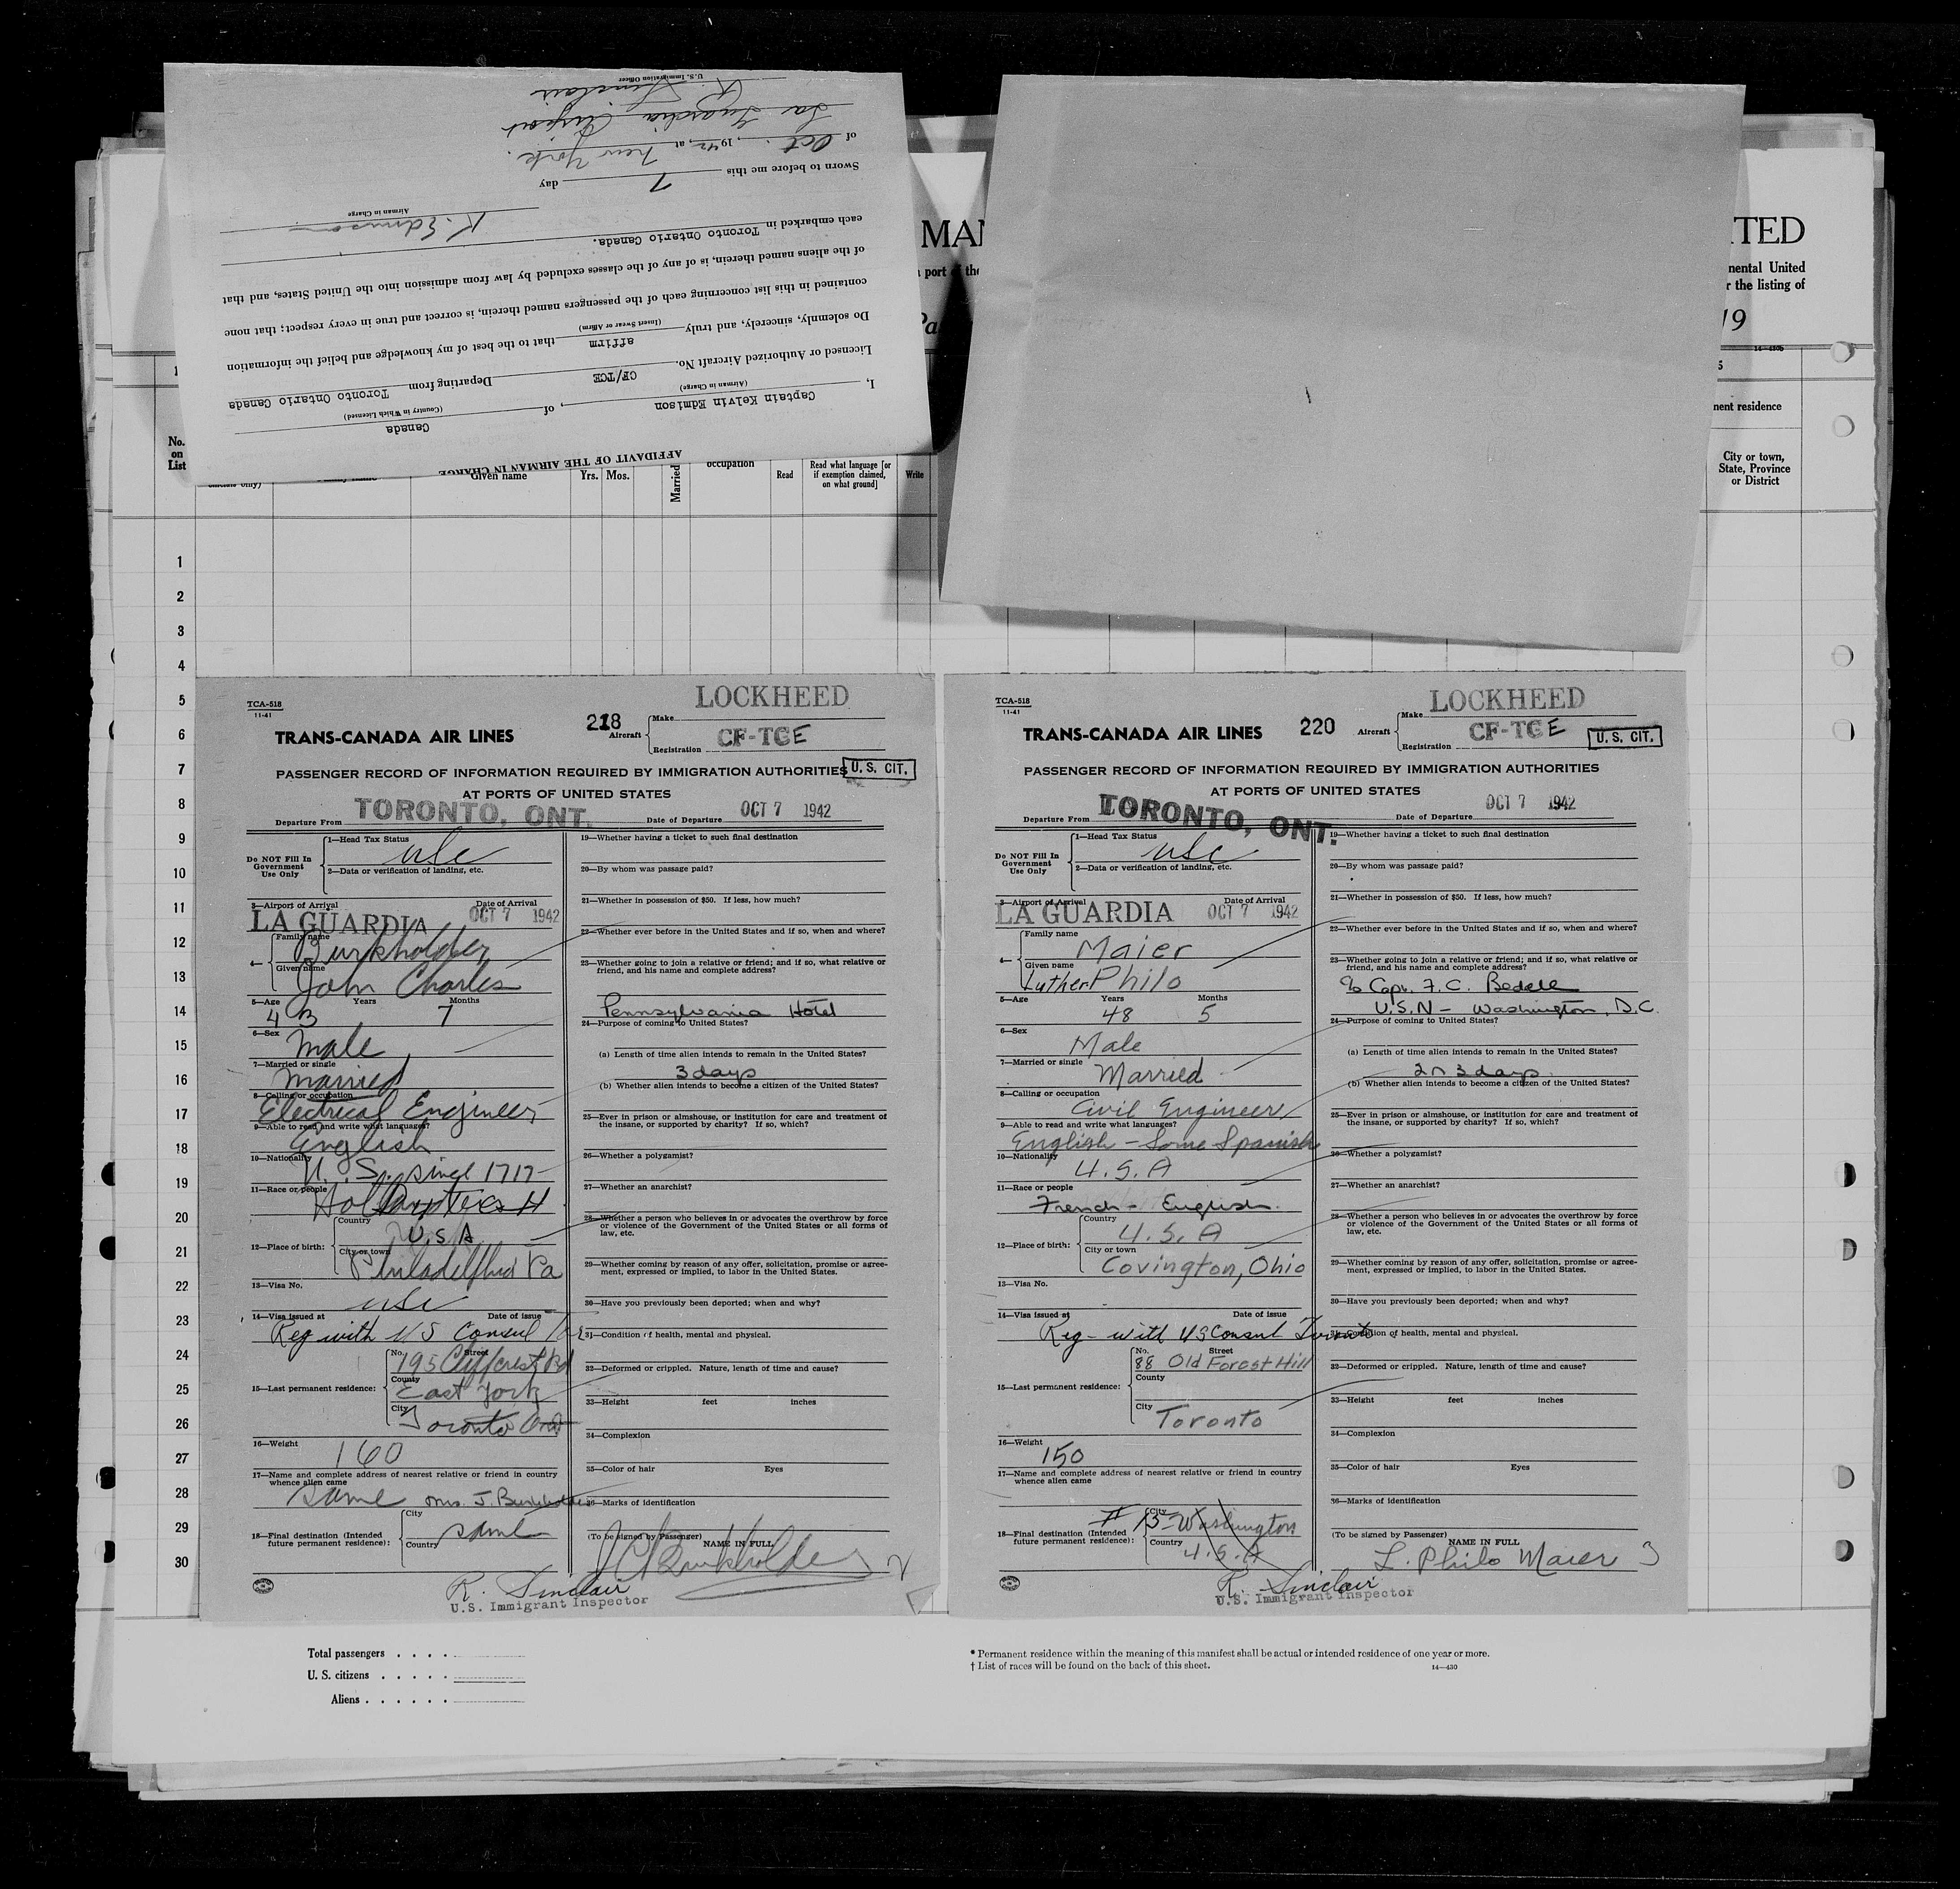 AFFIDAVIT OF THE AIRMAN IN CHARGE
I, Captain Kelvin Edmison, of Canada
(Airman in Charge) (Country in Which Licensed)
Licensed or Authorized Aircraft No. CF/TGE Departing from Toronto Ontario Canada
Do solemnly, sincerely, and truly affirm that to the best of my knowledge and belief the information
(Insert Swear or Affirm)
contained in this list concerning each of the passengers named therein, is correct and true in every respect; that none
of the aliens named therein, is of any of the classes excluded by law from admission into the United States, and that
each embarked in Toronto Ontario Canada.
K. Edmison
Airman in Charge
Sworn to before me this 7 day
of Oct. , 1942, at New York.
La Guardia Airport
R. Sinclair
U.S. Immigration Officer
MAN
TED
port of the
nental United
r the listing of
Pa
19
14—430b
1
5
nent residence
No.
on
List
Given name
Yrs. Mos.
Married
occupation
Read
Read what language [or
if exemption claimed,
on what ground]
Write
City or town,
State, Province
or District
1
2
3
4
5
6
7
8
9
10
11
12
13
14
15
16
17
18
19
20
21
22
23
24
25
26
27
28
29
30
TCA-518
11-41
LOCKHEED
218
Aircraft
Make
TRANS-CANADA AIR LINES
Registration CF-TGE
PASSENGER RECORD OF INFORMATION REQUIRED BY IMMIGRATION AUTHORITIES
U. S. CIT.
AT PORTS OF UNITED STATES
Departure From TORONTO, ONT. Date of Departure OCT 7 1942
Do NOT Fill In
Government
Use Only
1—Head Tax Status
USC
2—Data or verification of landing, etc.
3—Airport of Arrival Date of Arrival
LA GUARDIA OCT 7 1942
4— Family name
Burkholder
Given name
John Charles
5—Age Years Months
43 7
6—Sex
Male
7—Married or single
Married
8—Calling or occupation
Electrical Engineer
9—Able to read and write what languages?
English
10—Nationality
U. S. since 1717
11—Race or people
12—Place of birth:
Country
U.S.A
City or town
Philadelphia Pa
13—Visa No.
USC
14—Visa issued at Date of issue
Reg with US Consul
15—Last permanent residence:
No. Street
195 Cliffcrest Rd
County
East York
City
Toronto Ont
16—Weight
160
17—Name and complete address of nearest relative or friend in country
whence alien came
same Mrs. J. Burkholder
18—Final destination (Intended
future permanent residence):
City
same
Country
R. Sinclair
U.S. Immigrant Inspector
19—Whether having a ticket to such final destination
20—By whom was passage paid?
21—Whether in possession of $50. If less, how much?
22—Whether ever before in the United States and if so, when and where?
23—Whether going to join a relative or friend; and if so, what relative or
friend, and his name and complete address?
Pennsylvania Hotel
24—Purpose of coming to United States?
(a) Length of time alien intends to remain in the United States?
3 days
(b) Whether alien intends to become a citizen of the United States?
25—Ever in prison or almshouse, or institution for care and treatment of
the insane, or supported by charity? If so, which?
26—Whether a polygamist?
27—Whether an anarchist?
28—Whether a person who believes in or advocates the overthrow by force
or violence of the Government of the United States or all forms of
law, etc.
29—Whether coming by reason of any offer, solicitation, promise or agree-
ment, expressed or implied, to labor in the United States.
30—Have you previously been deported; when and why?
31—Condition of health, mental and physical.
32—Deformed or crippled. Nature, length of time and cause?
33—Height feet inches
34—Complexion
35—Color of hair Eyes
36—Marks of identification
(To be signed by Passenger)
NAME IN FULL
J C Burkholder 2
TCA-518
11-41
LOCKHEED
220
Aircraft
Make
TRANS-CANADA AIR LINES
Registration CF-TGE
U. S. CIT.
PASSENGER RECORD OF INFORMATION REQUIRED BY IMMIGRATION AUTHORITIES
AT PORTS OF UNITED STATES
Departure From TORONTO, ONT. Date of Departure OCT 7 1942
Do NOT Fill In
Government
Use Only
1—Head Tax Status
USC
2—Data or verification of landing, etc.
3—Airport of Arrival Date of Arrival
LA GUARDIA OCT 7 1942
4— Family name
Maier
Given name
Luther Philo
5—Age Years Months
48 5
6—Sex
Male
7—Married or single
Married
8—Calling or occupation
Civil Engineer
9—Able to read and write what languages?
English - Some Spanish
10—Nationality
U.S.A
11—Race or people
French - English.
12—Place of birth:
Country
U.S.A
City or town
Covington, Ohio
13—Visa No.
14—Visa issued at Date of issue
Reg - with US Consul Toronto
15—Last permanent residence:
No. Street
88 Old Forest Hill
County
City
Toronto
16—Weight
150
17—Name and complete address of nearest relative or friend in country
whence alien came
18—Final destination (Intended
future permanent residence):
City
# 15 Washington
Country
U.S.A
R. Sinclair
U.S. Immigrant Inspector
19—Whether having a ticket to such final destination
20—By whom was passage paid?
21—Whether in possession of $50. If less, how much?
22—Whether ever before in the United States and if so, when and where?
23—Whether going to join a relative or friend; and if so, what relative or
friend, and his name and complete address?
% Capt. F. C. Bedell
U.S.N - Washington, D.C.
24—Purpose of coming to United States?
(a) Length of time alien intends to remain in the United States?
2 or 3 days
(b) Whether alien intends to become a citizen of the United States?
25—Ever in prison or almshouse, or institution for care and treatment of
the insane, or supported by charity? If so, which?
26—Whether a polygamist?
27—Whether an anarchist?
28—Whether a person who believes in or advocates the overthrow by force
or violence of the Government of the United States or all forms of
law, etc.
29—Whether coming by reason of any offer, solicitation, promise or agree-
ment, expressed or implied, to labor in the United States.
30—Have you previously been deported; when and why?
31—Condition of health, mental and physical.
32—Deformed or crippled. Nature, length of time and cause?
33—Height feet inches
34—Complexion
35—Color of hair Eyes
36—Marks of identification
(To be signed by Passenger)
NAME IN FULL
L. Philo Maier 3
Total passengers . . . .
U. S. citizens . . . . .
Aliens . . . . . .
* Permanent residence within the meaning of this manifest shall be actual or intended residence of one year or more.
† List of races will be found on the back of this sheet.
14—430